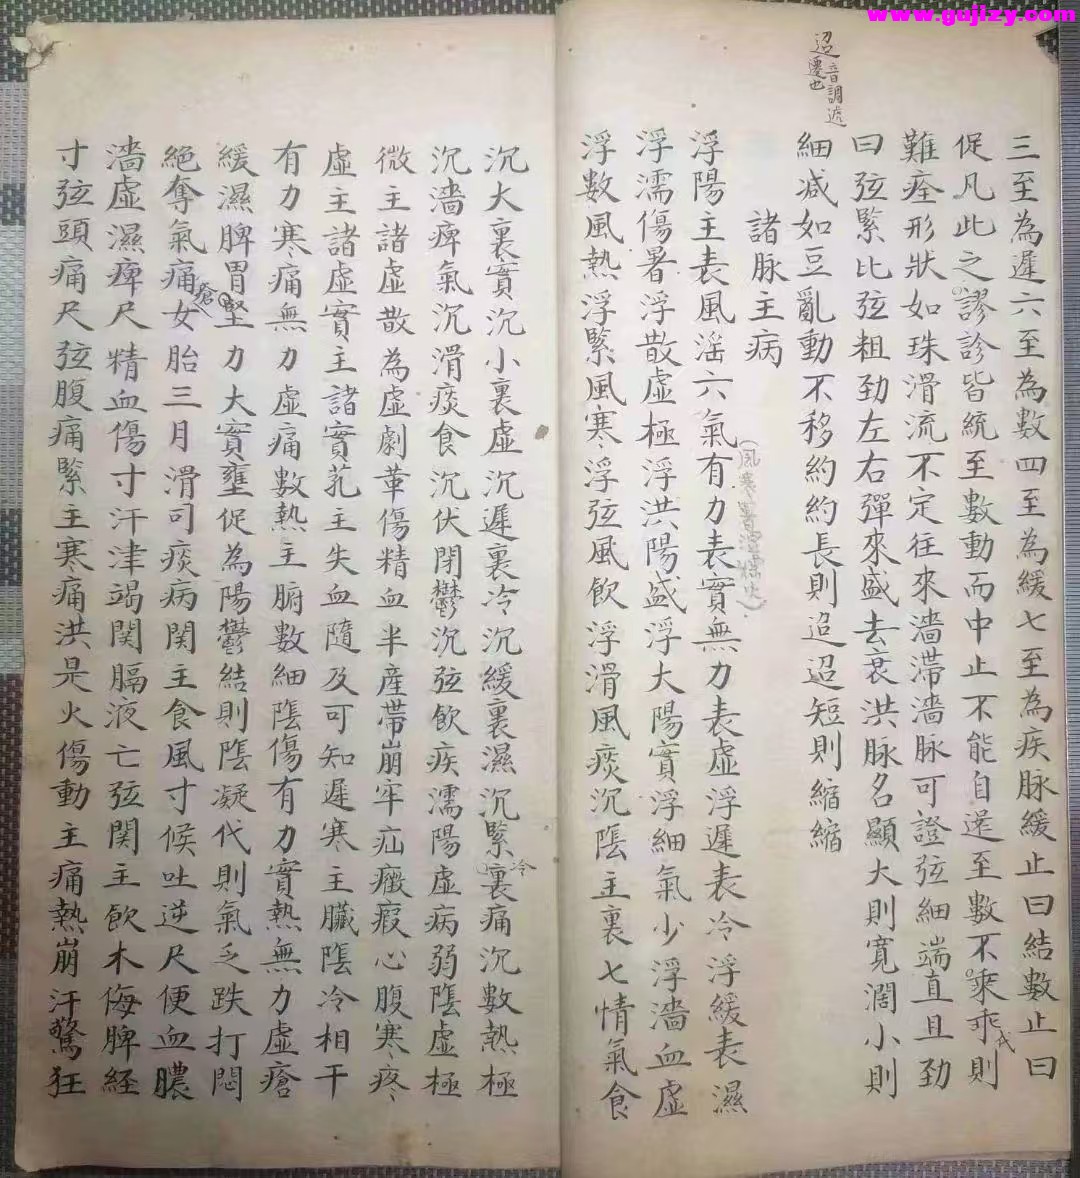 www.gujizy.com
三至為遲六至為數四至為緩七至為疾脉緩止曰結數止曰
促凡此之謬診皆統至數動而中止不能自還至數不乘乖則
代
難痊形狀如珠滑流不定往來濇滯濇脉可證弦細端直且勁
曰弦緊比弦粗勁左右彈來盛去衰洪脉名顯大則寬濶小則
細减如豆亂動不移約約長則迢迢短則縮縮
迢音調遞
遷也
諸脉主病
浮陽主表風滛六氣有力表實無力表虛浮遲表冷浮緩表濕
(風寒暑濕燥火)
浮濡傷暑浮散虛極浮洪陽盛浮大陽實浮細氣少浮濇血虛
浮數風熱浮緊風寒浮弦風飲浮滑風痰沉隂主裏七情氣食
沉大裏實沉小裏虛沉遲裏冷沉緩裏濕沉緊裏痛沉數熱極
冷
沉濇痺氣沉滑痰食沉伏閉鬱沉弦飲疾濡陽虛病弱隂虛極
微主諸虛散為虛劇革傷精血半産帶崩牢疝癥瘕心腹寒疼
虛主諸虛實主諸實芤主失血隨及可知遲寒主臟隂冷相干
有力寒痛無力虛痛數熱主腑數細隂傷有力實熱無力虛瘡
緩濕脾胃堅力大實壅促為陽鬱結則隂凝代則氣乏跌打悶
絕奪氣痛女胎三月滑司痰病関主食風寸候吐逆尺便血膿
瘡
濇虛濕痺尺精血傷寸汗津竭関膈液亡弦関主飲木侮脾經
寸弦頭痛尺弦腹痛緊主寒痛洪是火傷動主痛熱崩汗驚狂